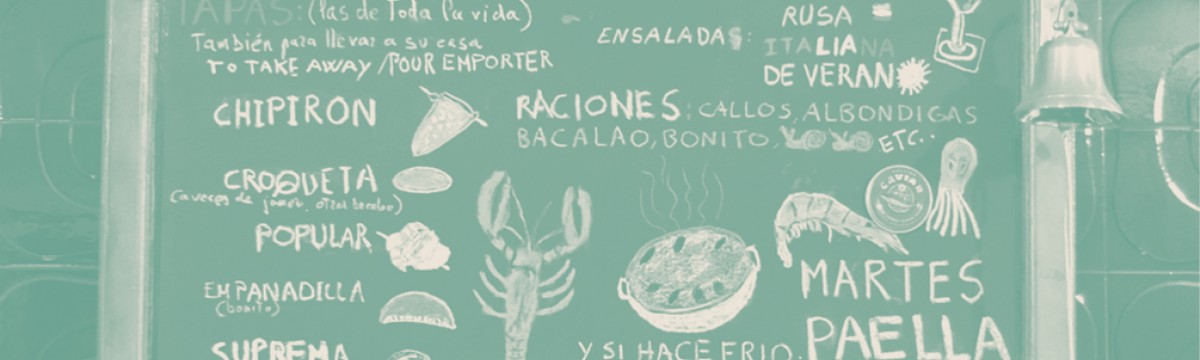 TAPAS: (las de Toda la vida)
También para llevar a su casa
TO TAKE AWAY / POUR EMPORTER
CHIPIRON
CROQUETA
(a veces de jamon, otras bacalao)
POPULAR
EMPANADILLA
(bonito)
SUPREMA
ENSALADAS:
RUSA
ITALIANA
DE VERANO
RACIONES: CALLOS, ALBONDIGAS
BACALAO, BONITO, ETC..
CAVIAR
MARTES
PAELLA
Y SI HACE FRIO,